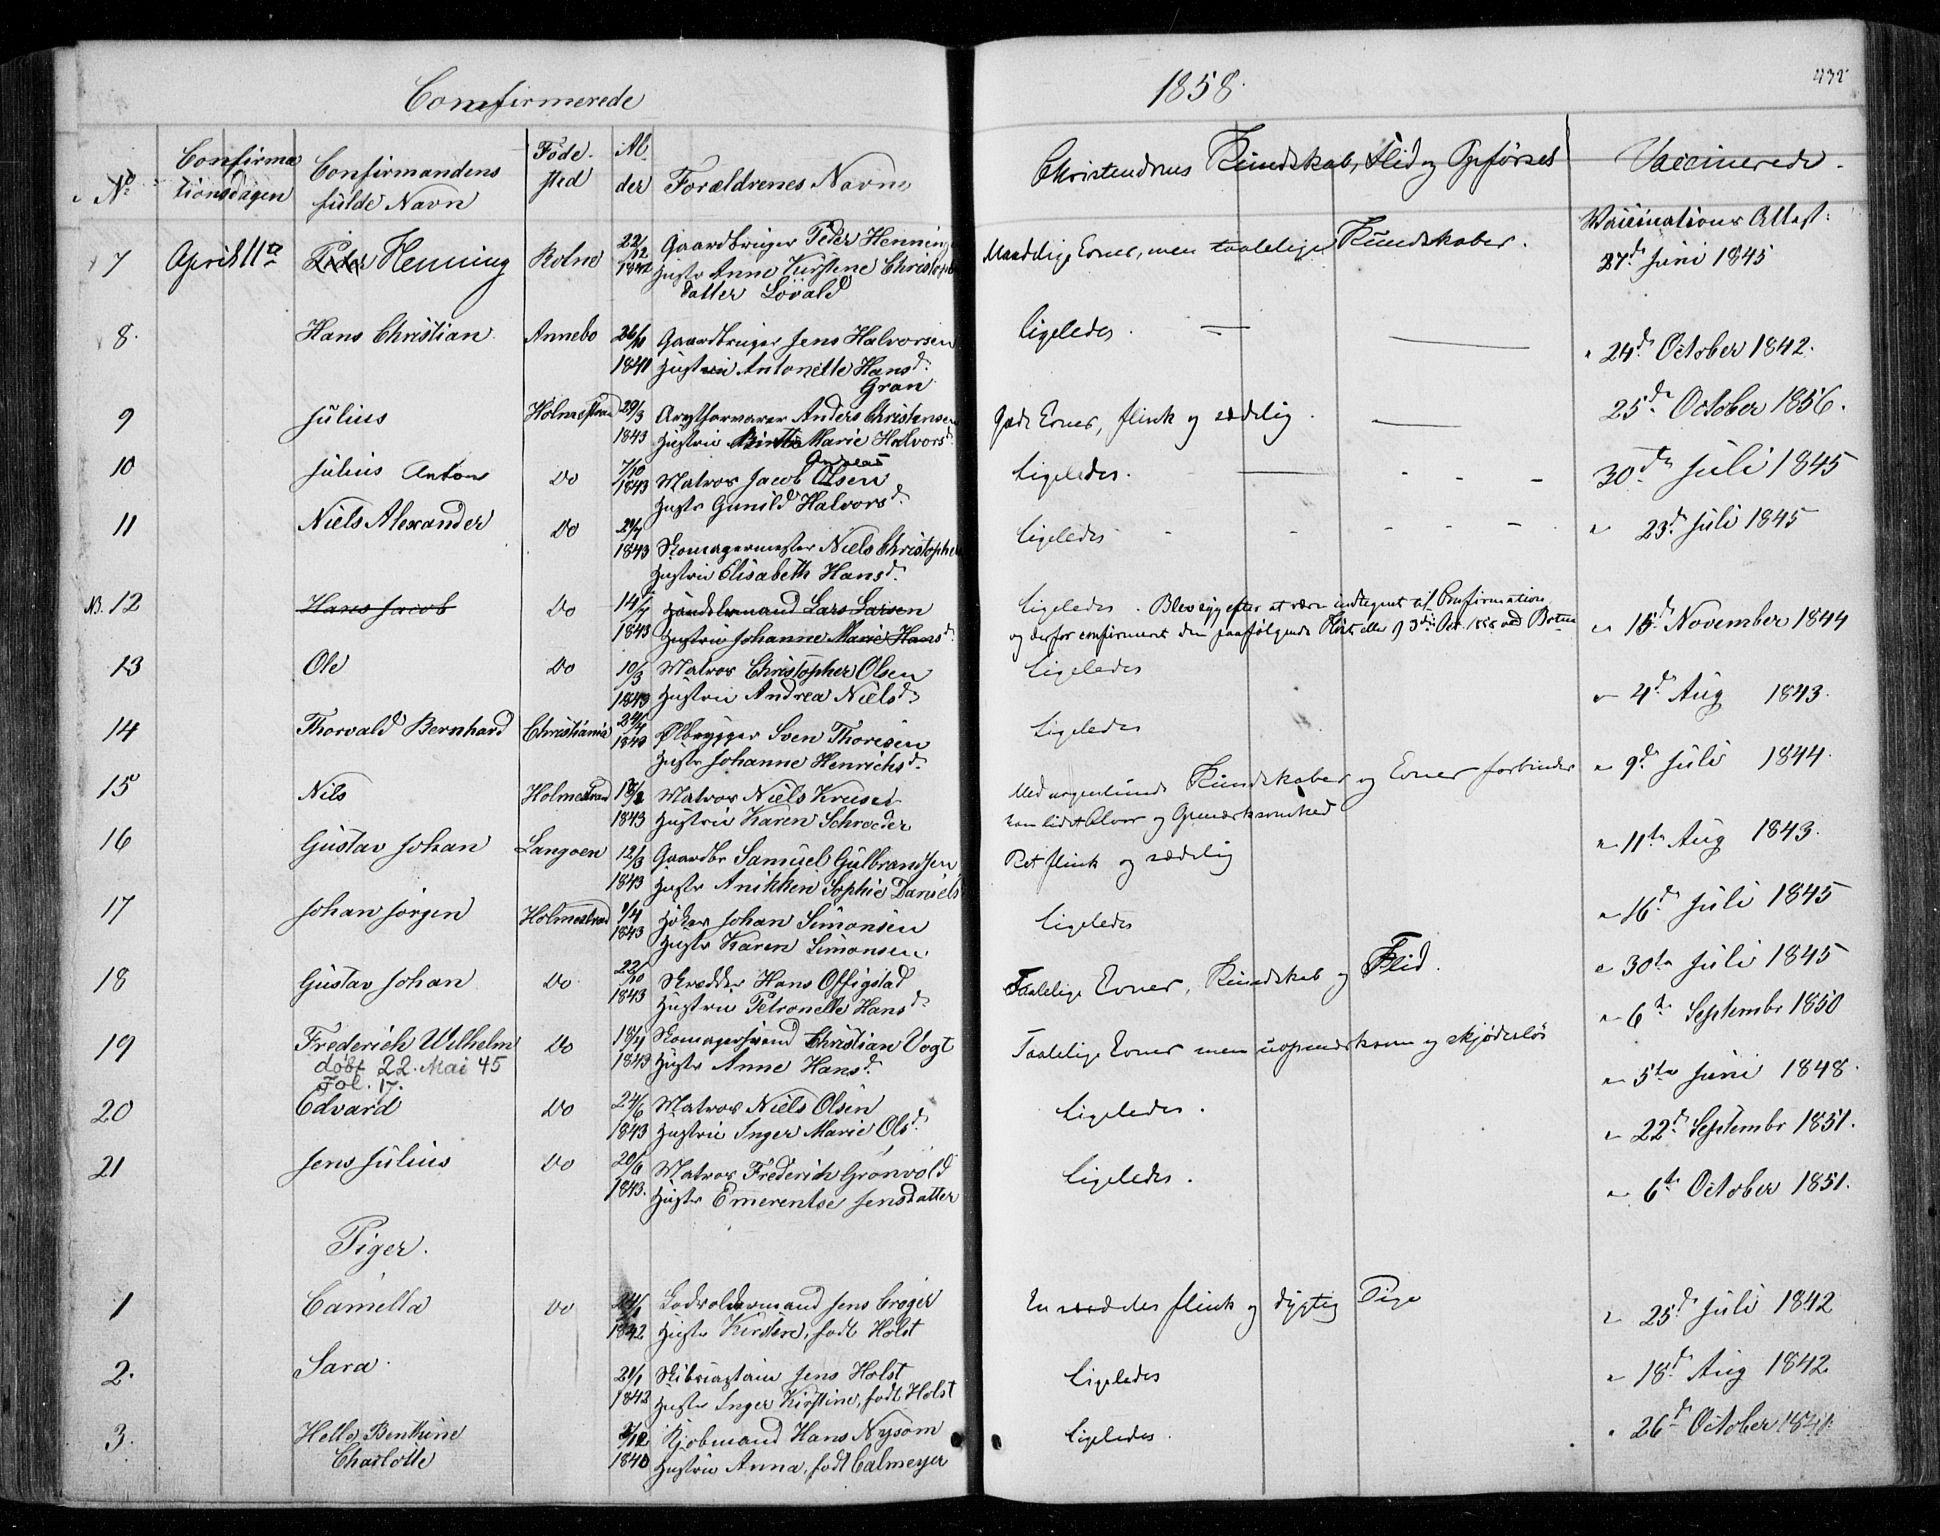 Confirmerede 1858. 432
No Confirmationsdagen Confirmandens fulde Navn Fødested Alder Forældrenes Navne Christendoms Kundskab, Flid og Opførsel Vaccinerede.
Vaccinations Attest:
7 April 11te Peder Henning Rolne 22/12 1842 Gaardbruger Peder Henning Maadelige Evner, men taalelige Kundskaber. 27de Juni 1845
Hustr Anne Kirstine Christoph
datter Løvald
8. Hans Christian Annebo 26/10 1841 Gaardbruger Jens Halvorsen Ligeledes. " 24de October 1842.
Hustru Antonette Hansd.
Gran
9 Julius Holmestrand 29/3 1843 Anders Christensen Gode Evner, flink og sædelig. 25de October 1856.
Hustru Marie Halvorsd.
10 Julius Anton Do 7/10 1843 Matros Jacob Andreas Olsen Ligeledes. 30de Juli 1845
Hustr Gunild Halvorsd.
11 Niels Alexander Do 29/7 1843 Skomagermester Niels Christophe Ligeledes " 23de Juli 1845
Hustru Elisabeth Hansd.
NB. 12 Hans Jacob Do 14/7 1843 Handelsmand Lars Larsen Ligeledes. Blev syg efter at være indtegnet til Confirmation " 15de November 1844
Hustru Johanne Marie Hansd. og derfor confirmeret den paafølgende Høst eller 3die Oct. 1858 ved Botne
13 Ole Do 10/3 1843 Matros Christopher Olsen Ligeledes " 4de Aug 1843.
Hustru Andrea Nielsd.
14 Thorvald Bernhard Christiania 24/4 1843 Ølbrygger Sven Thoresen Ligeledes " 9de Juli 1844.
Hustr Johanne Henrichsd.
15 Nils Holmestrand 1843 Matros Niels Kruse Med Kundskaber og Evner forbinder
Hustru Karen Schrøder han lidet Alvor og Opmærksomhed " 11te Aug 1843.
16 Gustav Johan Langøen 12/3 1843 Gaardbr Samuel Gulbrandsen Ret flink og sædelig " 16de Juli 1845
Hustr Anikken Sophie Daniels
17 Johan Jørgen Holmestrand 1/4 1843 Høker Johan Simonsen Ligeledes " 30te Juli 1845
Hustr Karen Simonsen.
18 Gustav Johan Do 22/10 1843 Skrædder Hans Offigstad Taalelige Evner, Kundskab og Flid. " 6te Septembr 1850
Hustru Petronelle Hansd.
19 Frederich Wilhelm Do 18/4 1843 Skomagersvend Christian Vogt Taalelige Evner men uopmærksom og skjødesløs " 5te Juni 1848.
døbt 22. Mai 45 Hustr Anne Hansd.
Fol. 17.
20 Edvard Do 24/6 1843 Matros Niels Olsen Ligeledes. " 22de Septembr 1851.
Hustru Inger Marie Olsd.
21 Jens Julius Do 20/6 1843. Matros Frederich Grønvold Ligeledes. " 6te October 1851.
Hustr Emerentse Jensdatter
Piger.
1 Camilla Do 24/1 1842 Jens Crøger En flink og dygtig Pige " 25de Juli 1842
Hustr Kirstine, født Holst
2. Sara. 21/1 1842 Skibscaptain Jens Holst Ligeledes " 18de Aug 1842
Hustr Inger Kirstine, født Holst
3. Helle Benthine 1840 Kjøbmand Hans Nysom Ligeledes. " 26de October 1841.
Charlotte Hustru Anna, født Calmeyer